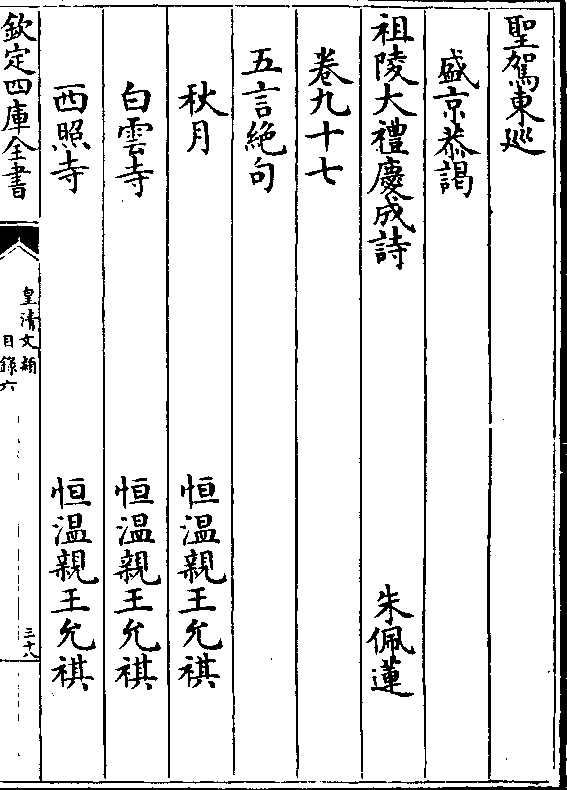 聖駕東廵
盛京恭謁
祖陵大禮慶成詩 朱佩蓮
卷九十七
五言絶句
秋月 恒温親王允祺
白雲寺 恒温親王允祺
西照寺 恒温親王允祺
欽定四庫全書
皇清文穎
目録六
三十八